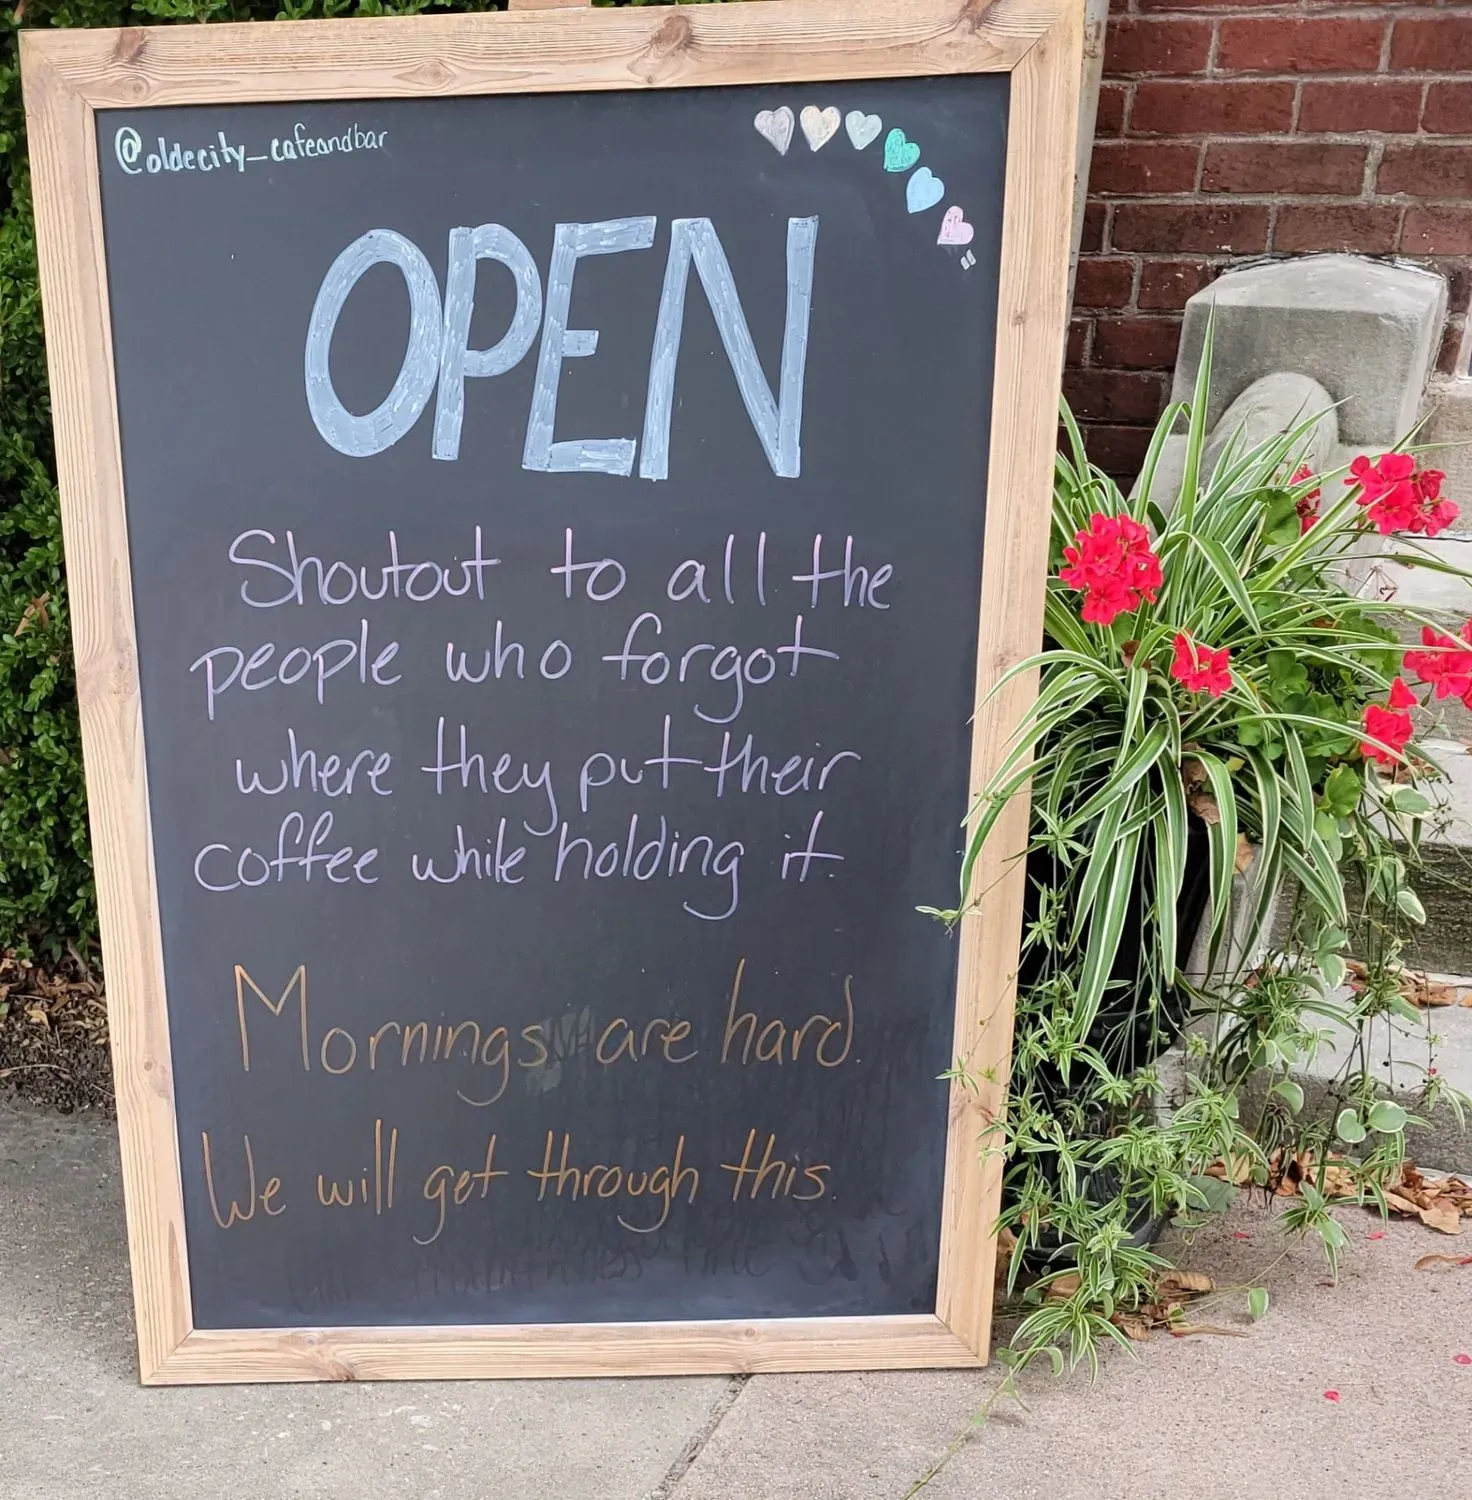 @oldecity_cafeandbar
OPEN
Shoutout to all the
people who forgot
where they put their
coffee while holding it.
Mornings are hard.
We will get through this.